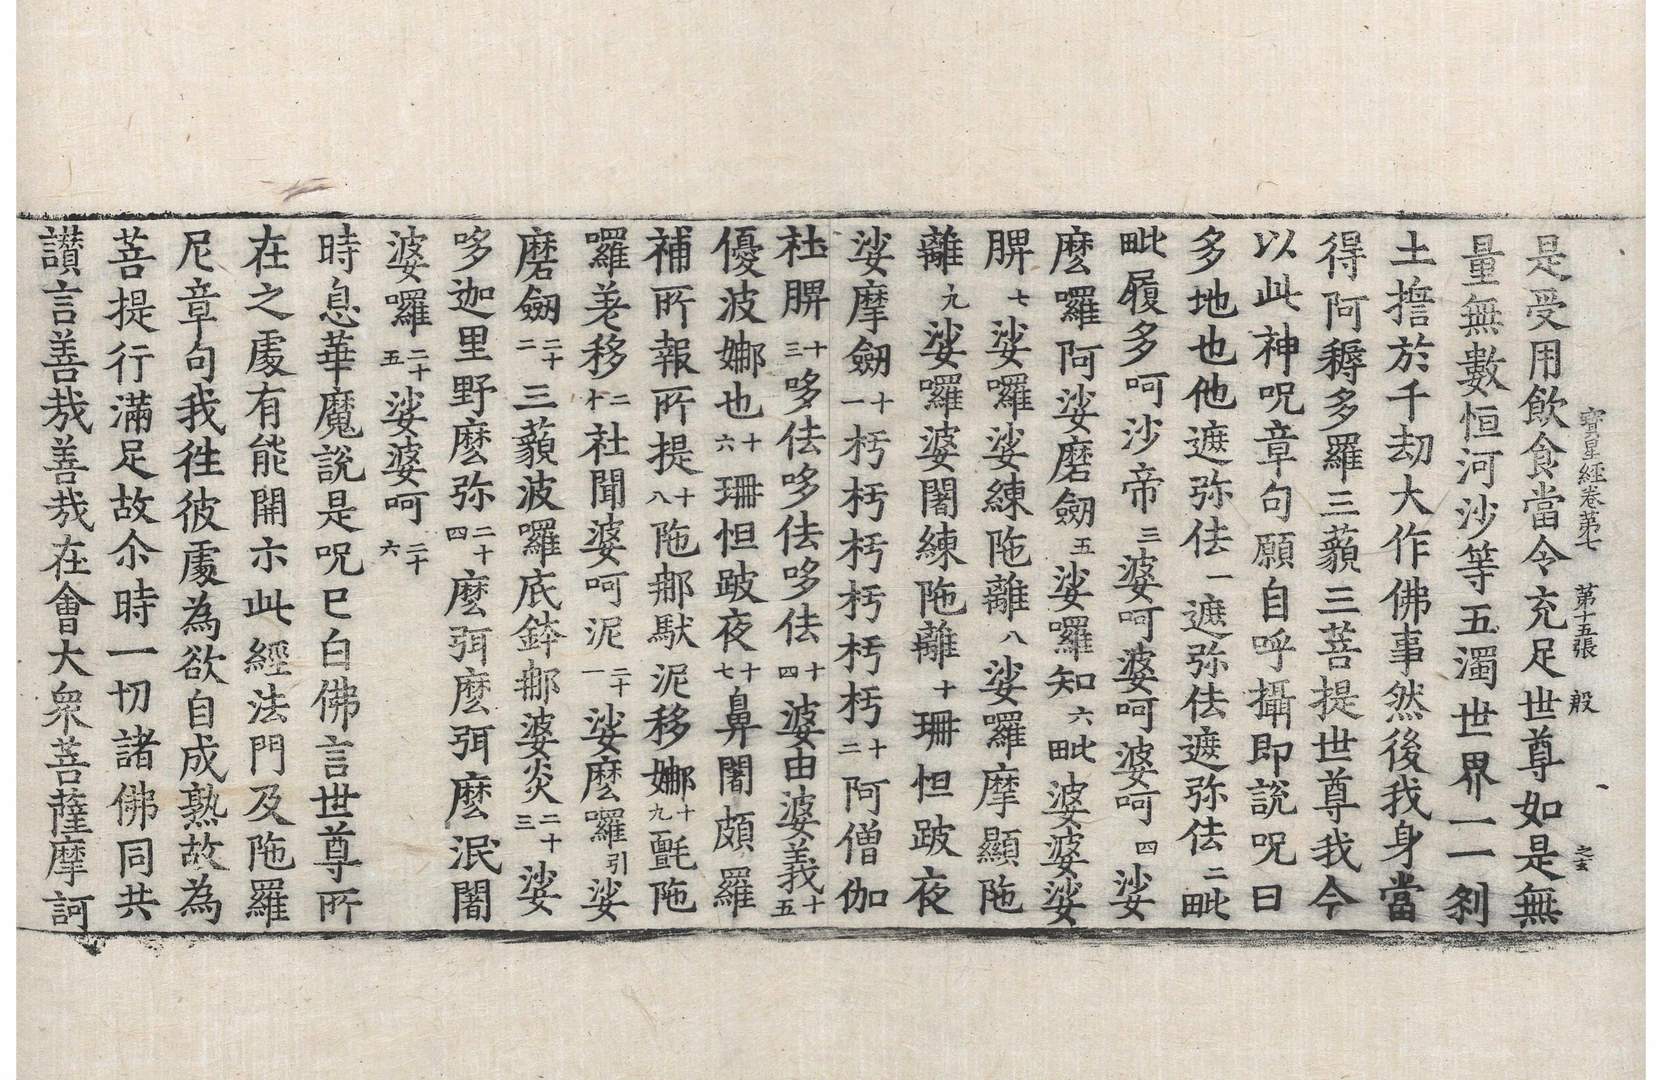 寶星經卷第七　第十五張　殷
是受用飲食當令充足世尊如是無
量無數恒河沙等五濁世界一一剎
土擔於千劫大作佛事然後我身當
得阿耨多羅三藐三菩提世尊我今
以此神呪章句願自呼攝即說呪曰
多地也他遮弥佉一遮弥佉遮弥佉二毗
毗履多呵沙帝三婆呵婆呵婆呵四娑
麽囉阿娑磨劒五娑囉知六毗婆婆娑
脾七娑囉娑練陁離八娑囉摩顯陁
離九娑囉婆闍練陁離十珊怛跛夜
娑摩劒十一杇杇杇杇杇杇十二阿僧伽
社脾十三哆佉哆佉哆佉十四婆由婆義十五
優波娜也十六珊怛跛夜十七鼻闍頗羅
補所報所提十八陁那馱泥移娜十九氎陁
囉差移二十社聞婆呵泥二十一娑麽囉引娑
磨劒二十二三藐波囉底鉢那婆炎二十三娑
哆迦里野麽弥二十四麽弭麽弭麽泯闍
婆囉二十五娑婆呵二十六
時息華魔說是呪已白佛言世尊所
在之處有能開示此經法門及陁羅
尼章句我往彼處為欲自成熟故為
菩提行滿足故尒時一切諸佛同共
讚言善哉善哉在會大衆菩薩摩訶